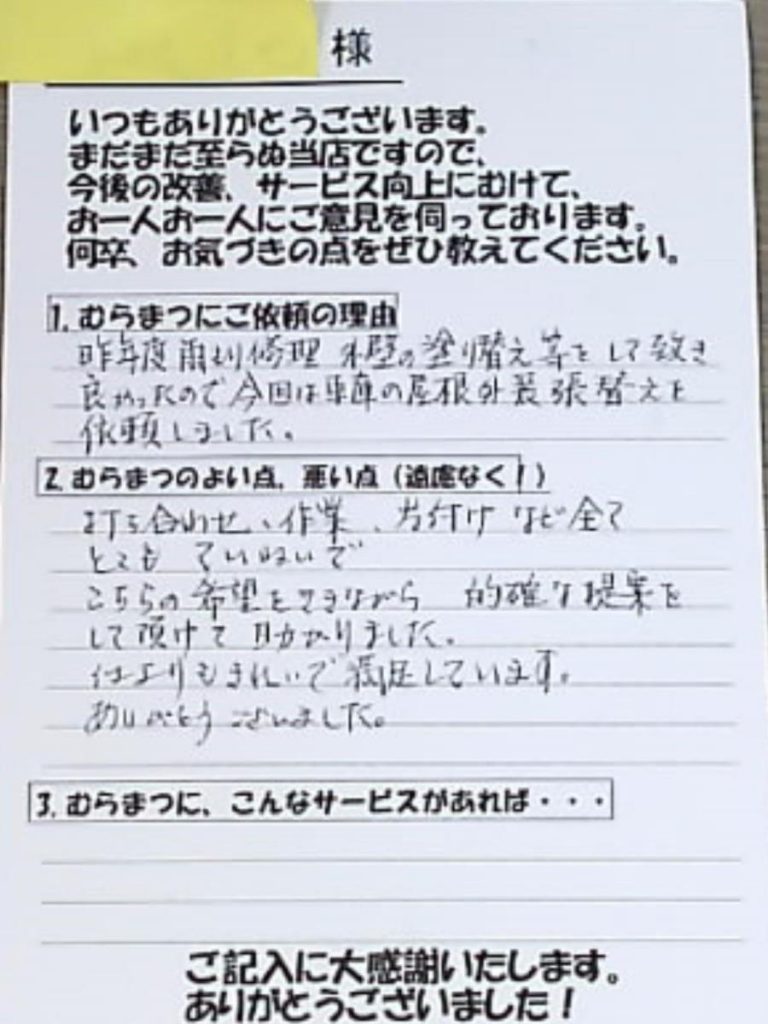 様
いつもありがとうございます。
まだまだ至らぬ当店ですので、
今後の改善、サービス向上にむけて、
お一人お一人にご意見を伺っております。
何卒、お気づきの点をぜひ教えてください。
1. むらまつにご依頼の理由
昨年度雨もり修理 外壁の塗り替え等をして頂き
良かったので今回は車庫の屋根外装張替えを
依頼しました。
2. むらまつのよい点、悪い点（遠慮なく！）
打ち合わせ、作業、片付けなど全て
とても ていねいで
こちらの希望をききながら 的確な提案を
して頂けて助かりました。
仕上りもきれいで満足しています。
ありがとうございました。
3. むらまつに、こんなサービスがあれば・・・
ご記入に大感謝いたします。
ありがとうございました！